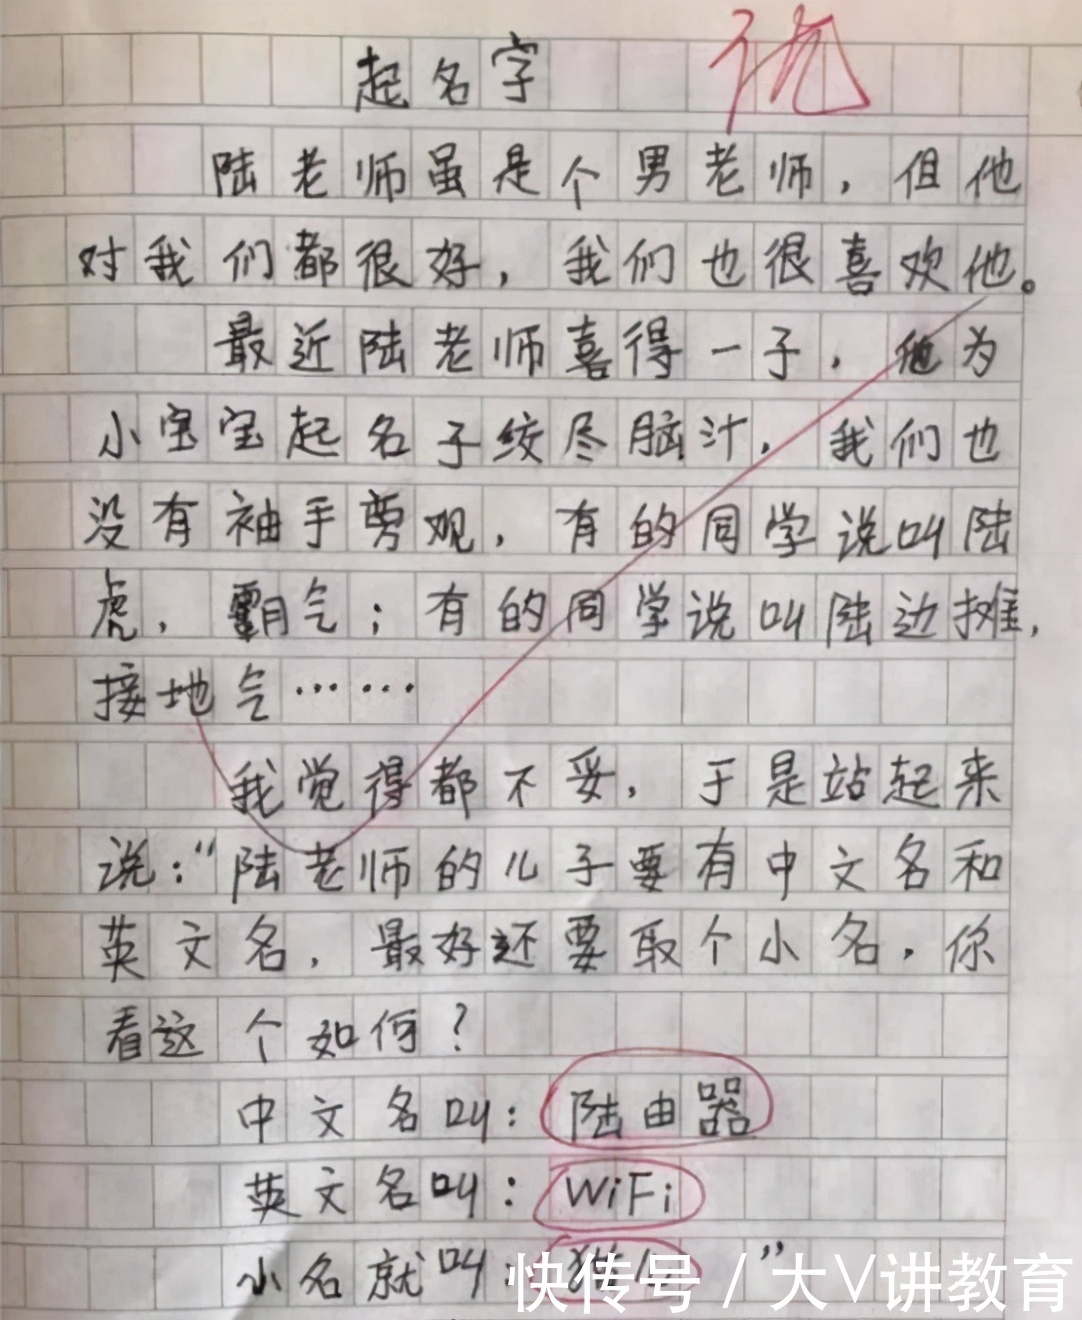 起名字 优
陆老师虽是个男老师，但他
对我们都很好，我们也很喜欢他。
最近陆老师喜得一子，他为
小宝宝起名子绞尽脑汁，我们也
没有袖手旁观，有的同学说叫陆
虎，霸气；有的同学说叫陆边摊，
接地气……
我觉得都不妥，于是站起来
说：“陆老师的儿子要有中文名和
英文名，最好还要取个小名，你
看这个如何？
中文名叫：陆由器
英文名叫：WiFi
小名就叫： ”
快传号 / 大V讲教育